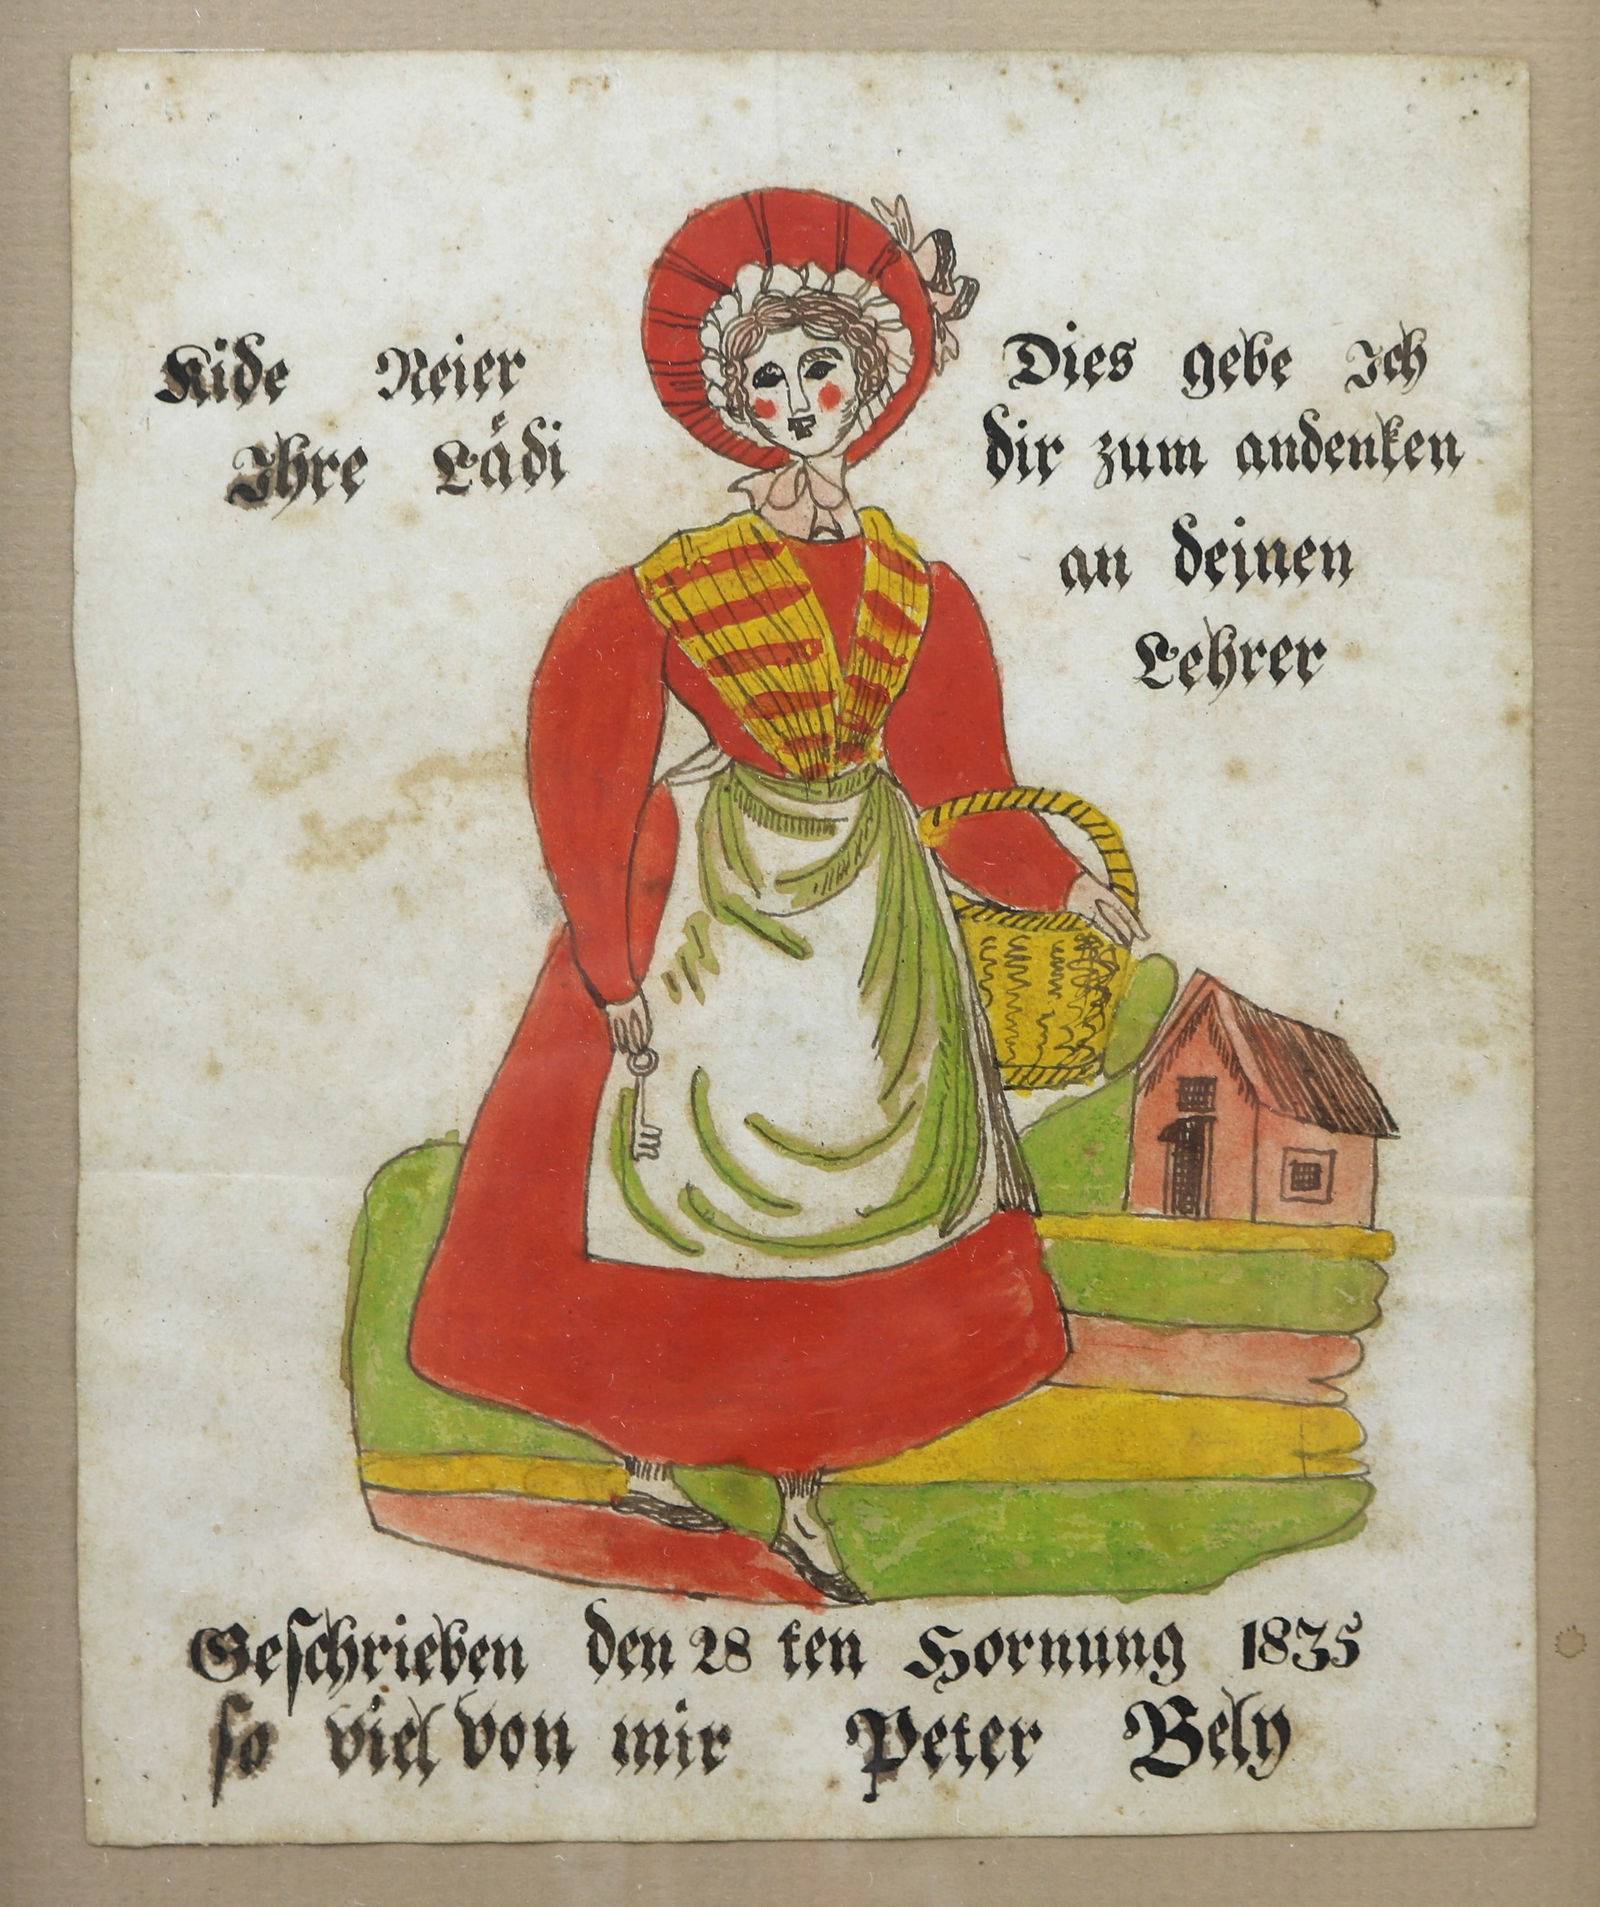 Kide Neier
Ihre Lädi
Dies gebe Ich
dir zum andenken
an deinen
Lehrer
Geschrieben den 28 ten Hornung 1835
so viel von mir Peter Bely